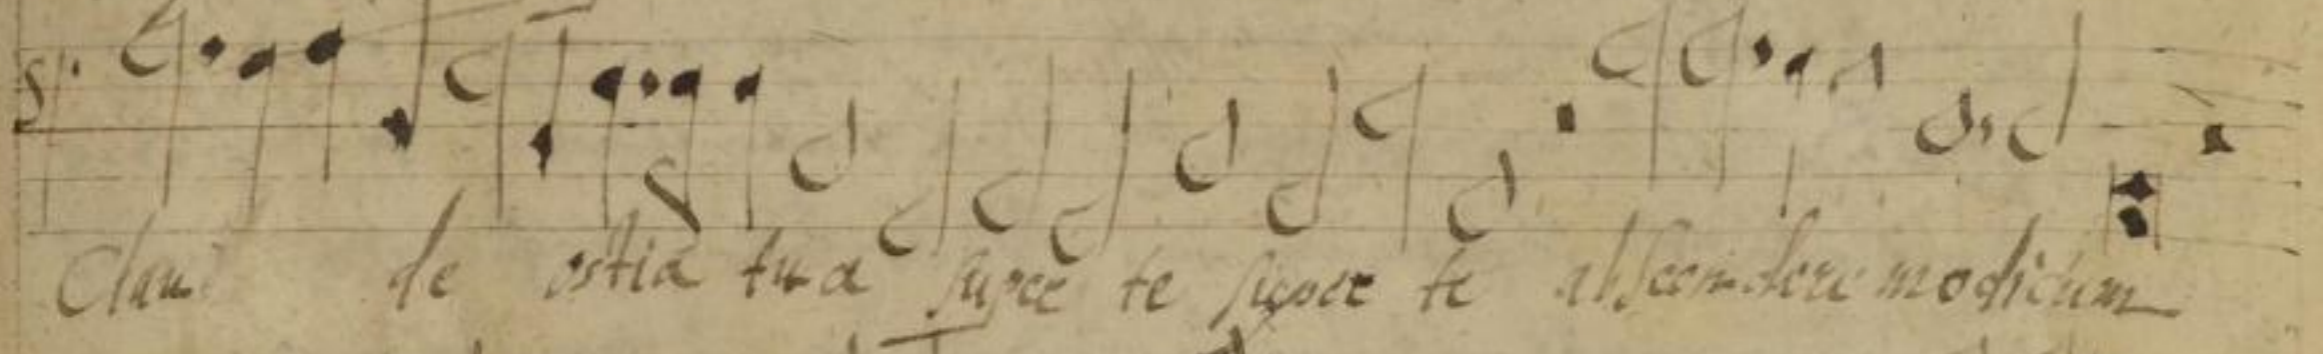 Clau de ostia tua super te super te abscondere modicum